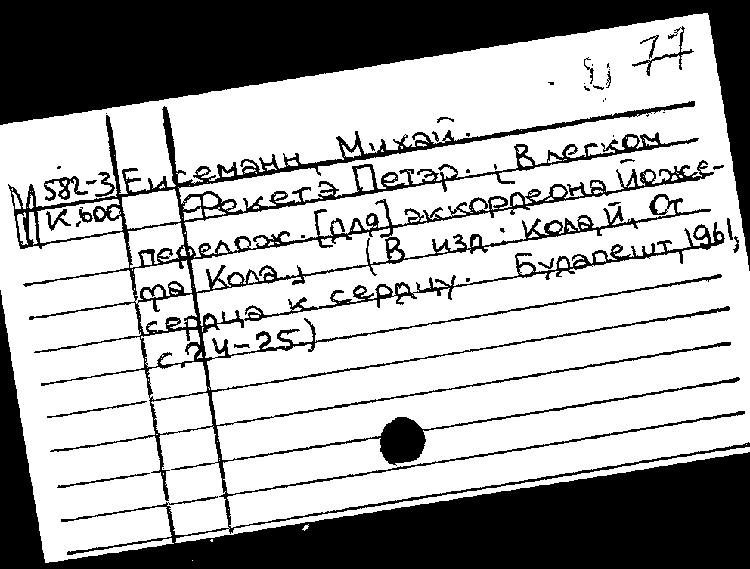 77
М 582-3 Еисеманн, Михай.
К.600 Фекетэ Петэр. [В легком
перелож. [для] аккордеона Йоже-
фа Кола.] (В изд.: Кола, Й. От
сердца к сердцу. Будапешт, 1961,
с. 24-25.)